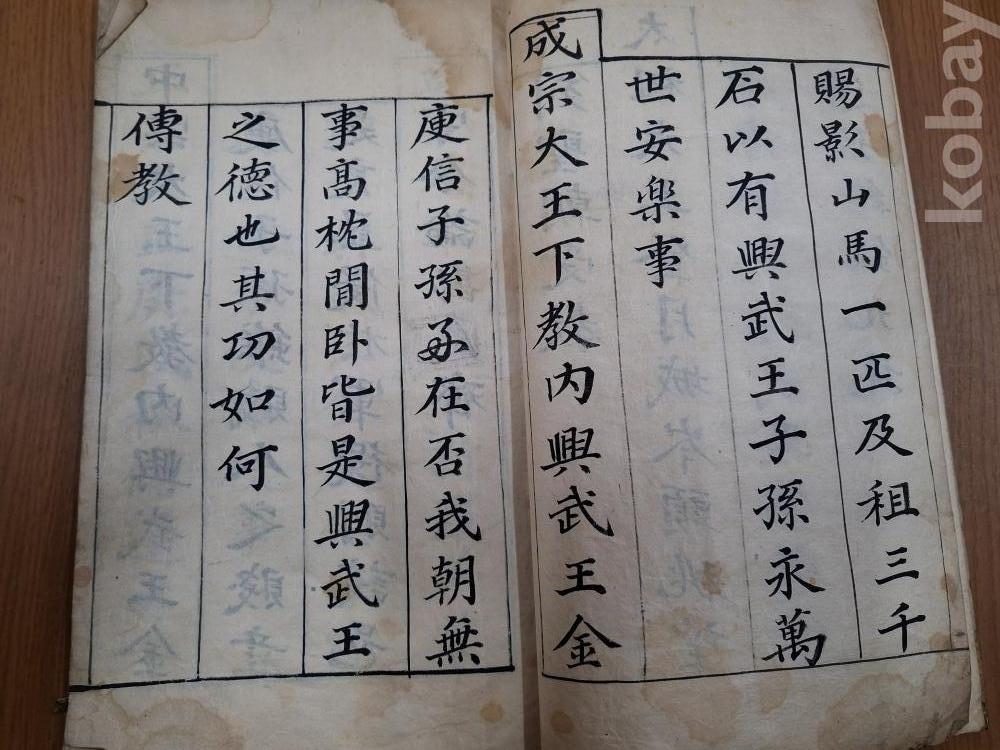 賜影山馬一匹及租三千
石以有興武王子孫永萬
世安楽事
成宗大王下教內興武王金
庾信子孫在否我朝無
事髙枕閒卧皆是興武王
之德也其功如何
傳教
kobay